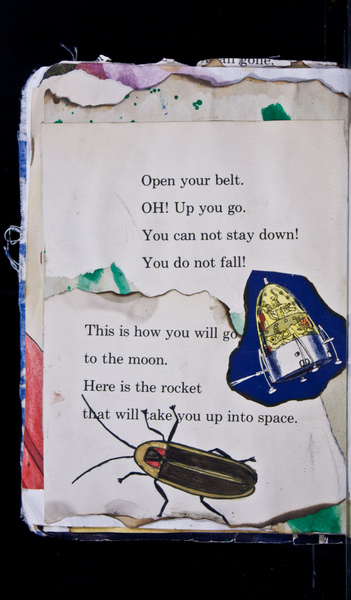 gone.
Open your belt.
OH! Up you go.
You can not stay down!
You do not fall!
This is how you will go
to the moon.
Here is the rocket
that will take you up into space.